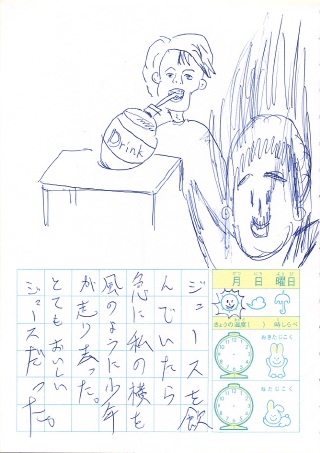 Drink
月 日 曜日
きょうの温度( ) 時しらべ
おきたじこく
ねたじこく
ジュースを飲
んでいたら
急に私の横を
風のように少年
が走り去った。
とてもおいしい
ジュースだった。